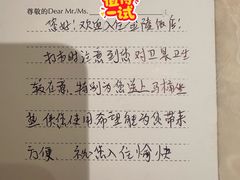 尊敬的Dear Mr./Ms.
值得一试
您好！欢迎入住金陵饭店！
打扫时注意到您对卫具卫生
较在意，特别为您送上马桶坐
垫供您使用希望能为您带来
方便 祝您入住愉快